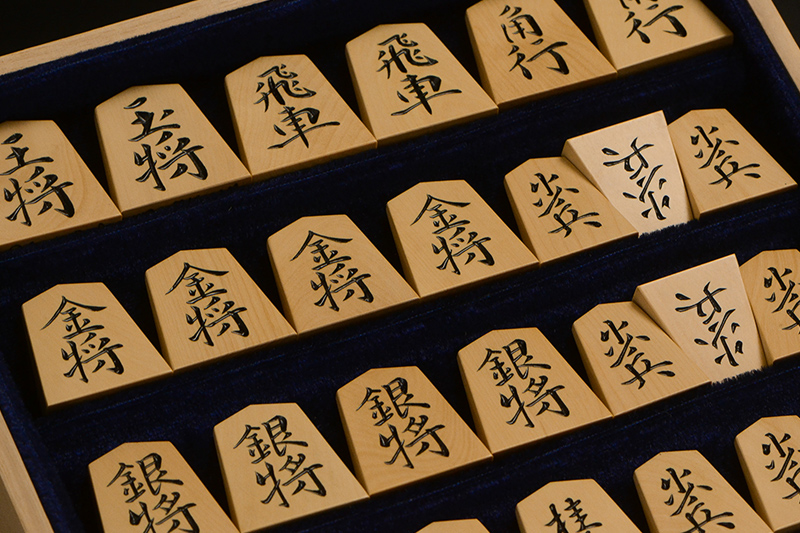 王将 玉将 飛車 飛車 角行 角行
金将 金将 金将 金将 歩兵 歩兵 歩兵
銀将 銀将 銀将 銀将 歩兵 歩兵 歩兵
桂 歩兵 歩兵